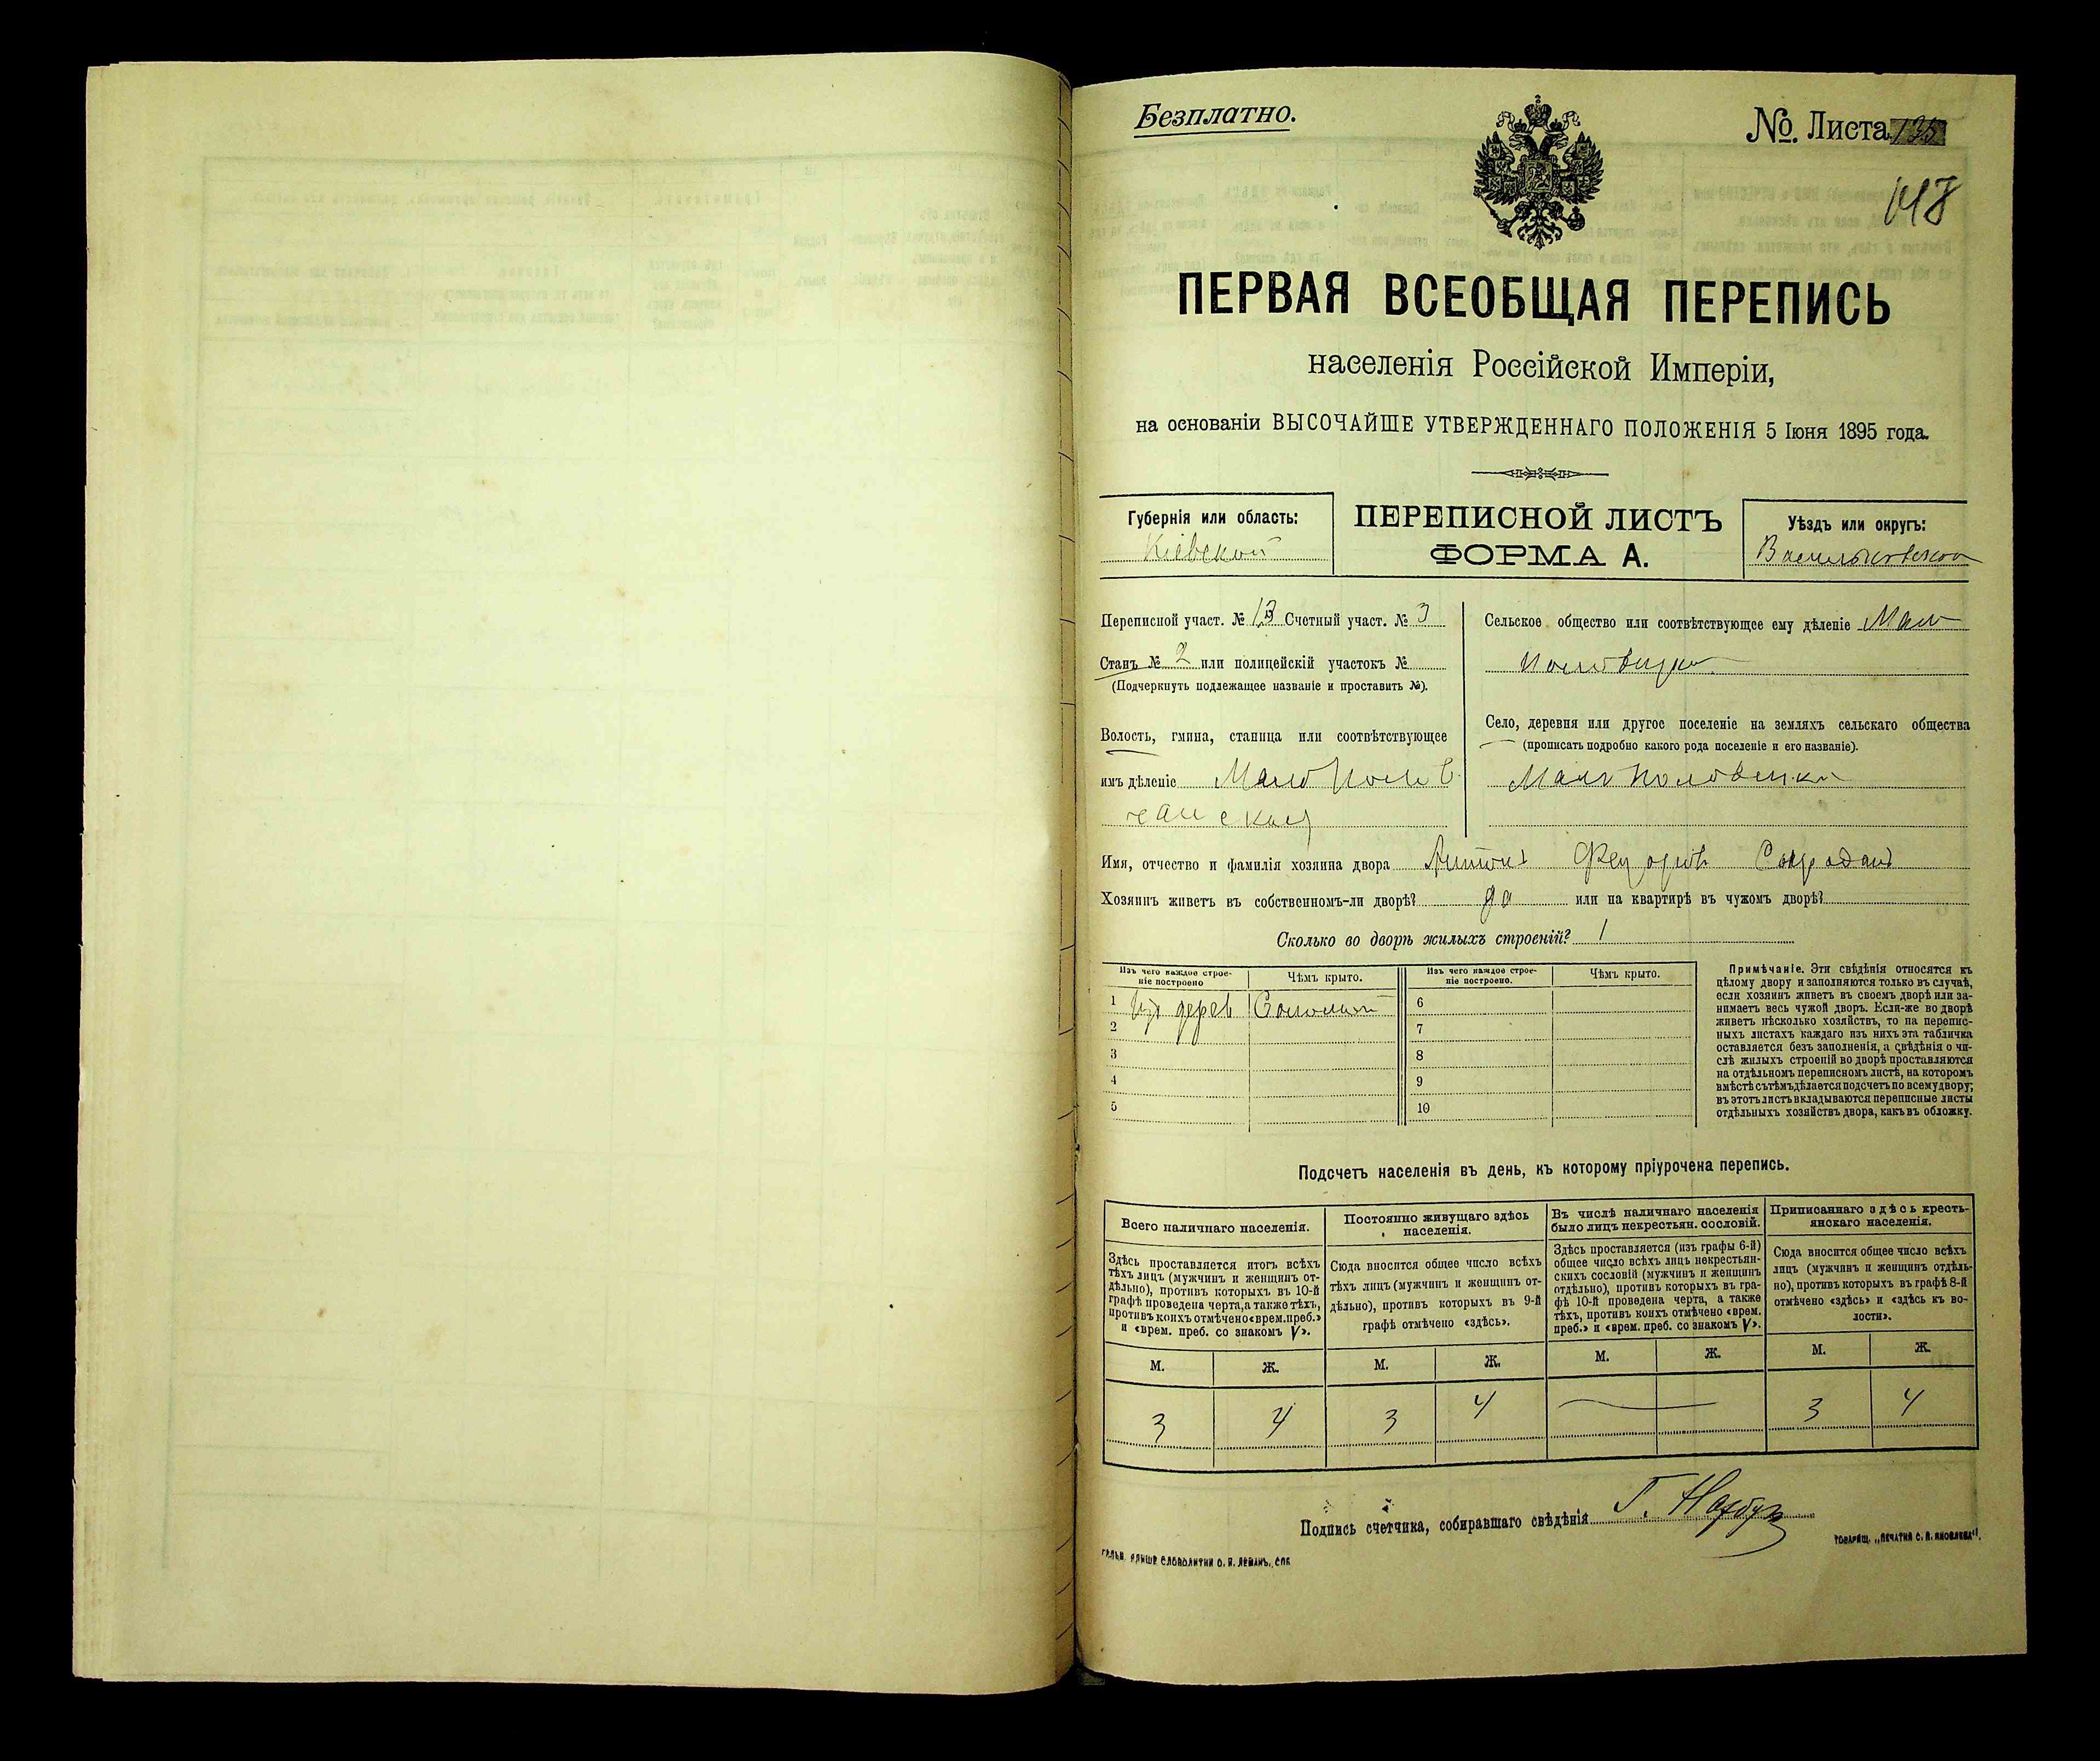 Безплатно.
№ Листа 135
ПЕРВАЯ ВСЕОБЩАЯ ПЕРЕПИСЬ
населенія Россійской Имперіи,
на основаніи ВЫСОЧАЙШЕ УТВЕРЖДЕННАГО ПОЛОЖЕНІЯ 5 Іюня 1895 года.
Губернія или область:
Кіевской
ПЕРЕПИСНОЙ ЛИСТЪ
ФОРМА А.
Уѣздъ или округъ:
Васильковской
Переписной участ. № 13 Счетный участ. № 3
Станъ № 2 или полицейскій участокъ №
(Подчеркнуть подлежащее названіе и проставить №).
Волость, гмина, станица или соотвѣтствующее
имъ дѣленіе Малополов
чанской
Сельское общество или соотвѣтствующее ему дѣленіе Мало
половецко
Село, деревня или другое поселеніе на земляхъ сельскаго общества
(прописать подробно какого рода поселеніе и его названіе).
Мало половецко
Имя, отчество и фамилія хозяина двора Антонъ
Хозяинъ живетъ въ собственномъ-ли дворѣ? да или на квартирѣ въ чужомъ дворѣ?
Сколько во дворѣ жилыхъ строеній? 1
Изъ чего каждое строе-
ніе построено
Чѣмъ крыто.
Изъ чего каждое строе-
ніе построено.
Чѣмъ крыто.
1 Изъ дерев Соломой
2
3
4
5
6
7
8
9
10
Примѣчаніе. Эти свѣдѣнія относятся къ
цѣлому двору и заполняются только въ случаѣ,
если хозяинъ живетъ въ своемъ дворѣ или за-
нимаетъ весь чужой дворъ. Если-же во дворѣ
живетъ нѣсколько хозяйствъ, то на перепис-
ныхъ листахъ каждаго изъ нихъ эта табличка
оставляется безъ заполненія, а свѣдѣнія о чи-
слѣ жилыхъ строеній во дворѣ проставляются
на отдѣльномъ переписномъ листѣ, на которомъ
вмѣстѣ съ тѣмъ дѣлается подсчетъ по всему двору;
въ этотъ листъ вкладываются переписные листы
отдѣльныхъ хозяйствъ двора, какъ въ обложку.
Подсчетъ населенія въ день, къ которому пріурочена перепись.
Всего наличнаго населенія.
Здѣсь проставляется итогъ всѣхъ
тѣхъ лицъ (мужчинъ и женщинъ от-
дѣльно), противъ которыхъ въ 10-й
графѣ проведена черта, а также тѣхъ,
противъ коихъ отмѣчено «врем. преб.»
и «врем. преб. со знакомъ V».
Постоянно живущаго здѣсь
населенія.
Сюда вносится общее число всѣхъ
тѣхъ лицъ (мужчинъ и женщинъ от-
дѣльно), противъ которыхъ въ 9-й
графѣ отмѣчено «здѣсь».
Въ числѣ наличнаго населенія
было лицъ некрестьян. сословій.
Здѣсь проставляется (изъ графы 6-й)
общее число всѣхъ лицъ некрестьян-
скихъ сословій (мужчинъ и женщинъ
отдѣльно), противъ которыхъ въ гра-
фѣ 10-й проведена черта, а также
тѣхъ, противъ коихъ отмѣчено «врем.
преб.» и «врем. преб. со знакомъ V».
Приписаннаго здѣсь кресть-
янскаго населенія.
Сюда вносится общее число всѣхъ
лицъ (мужчинъ и женщинъ отдѣль-
но), противъ которыхъ въ графѣ 8-й
отмѣчено «здѣсь» и «здѣсь къ во-
лости».
М. Ж. М. Ж. М. Ж. М. Ж.
3 4 3 4 3 4
Подпись счетчика, собиравшаго свѣдѣнія Г.
ТОВАРИЩ. „ПЕЧАТНЯ С. П. ЯКОВЛЕВА“.
СЛОВОЛИТНИ О. И. ЛЕМАНЪ, СПБ